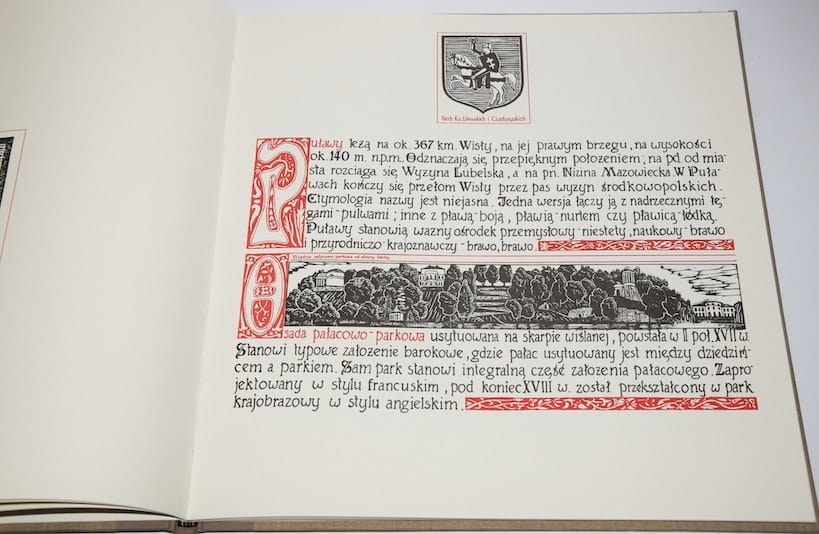 Herb Ks. Litewskich i Czartoryskich
Puławy leżą na ok. 367 km. Wisły, na jej prawym brzegu, na wysokości
ok. 140 m. n.p.m. Odznaczają się przepięknym położeniem; na pd. od mia-
sta rozciąga się Wyżyna Lubelska, a na pn. Nizina Mazowiecka. W Puła-
wach kończy się przełom Wisły przez pas wyżyn środkowopolskich.
Etymologia nazwy jest niejasna. Jedna wersja łączy ją z nadrzecznymi łę-
gami-pulwami; inne z pławą-boją, pławią-nurtem czy pławicą-łódką.
Puławy stanowią ważny ośrodek przemysłowy-niestety, naukowy-brawo
przyrodniczo krajoznawczy-brawo, brawo.
pałacowo-parkowa od strony
Osada pałacowo-parkowa usytuowana na skarpie wiślanej, powstała w II poł. XVII w.
Stanowi typowe założenie barokowe, gdzie pałac usytuowany jest między dziedziń-
cem a parkiem. Sam park stanowi integralną część założenia pałacowego. Zapro-
jektowany w stylu francuskim, pod koniec XVIII w. został przekształcony w park
krajobrazowy w stylu angielskim.